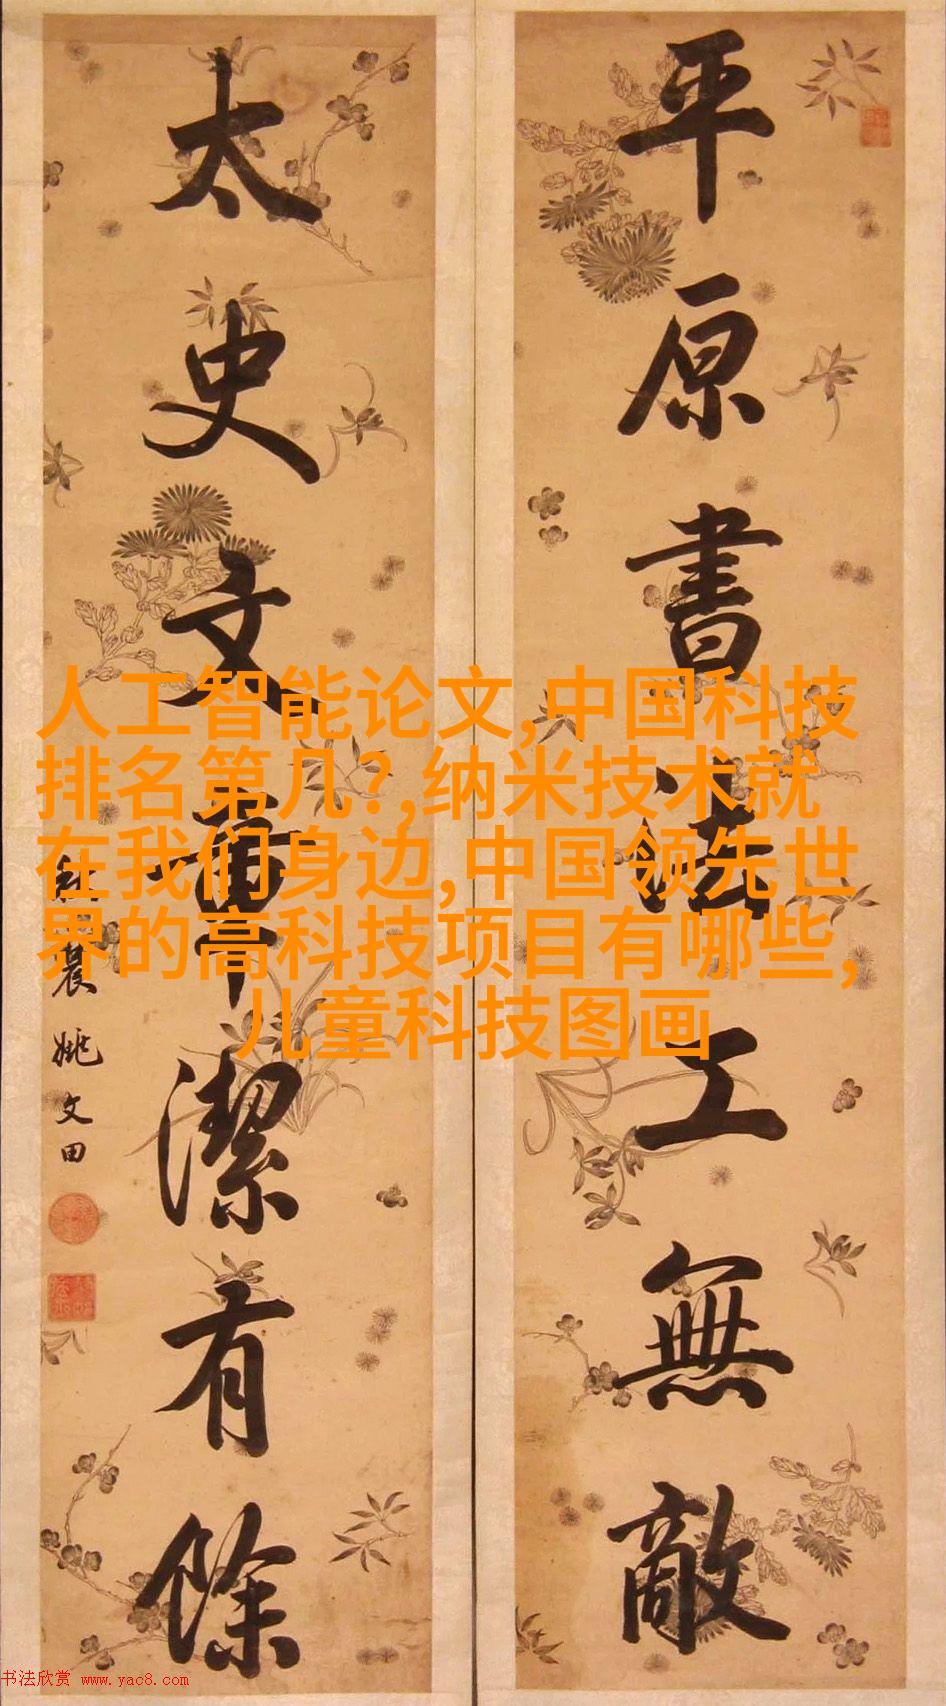 平原書法工無敵
太史文章潔有餘
姚文田
人工智能论文,中国科技
排名第几?,纳米技术就
在我们身边,中国领先世
界的高科技项目有哪些,
儿童科技图画
书法欣赏 www.yac8.com